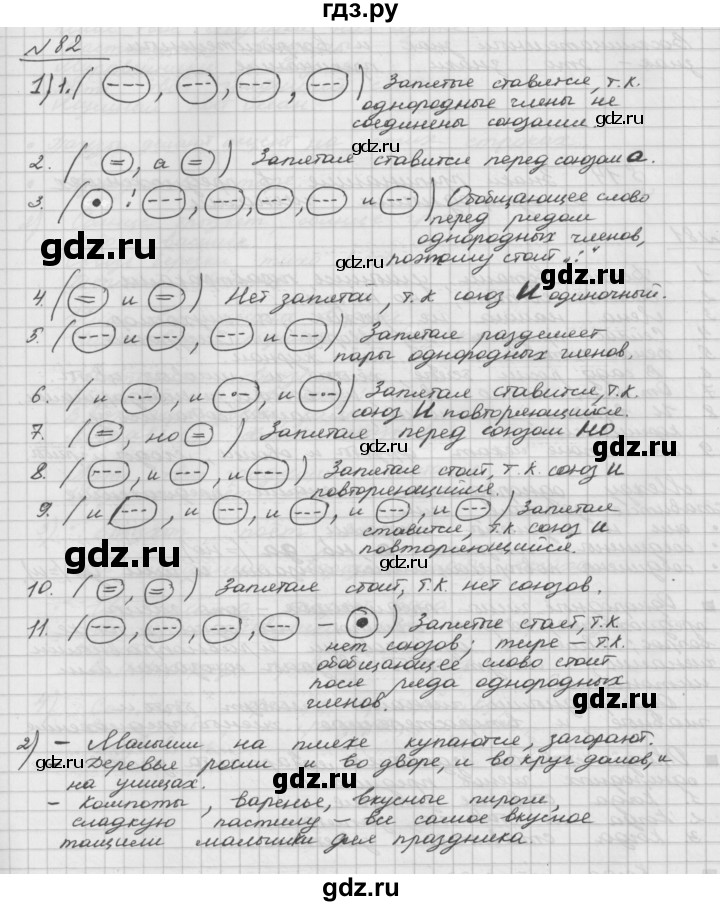 гдз.ру
№ 82
1) 1. ( , , , ) Запятые ставятся, т.к.
однородные члены не
соединены союзами.
gdz.ru
2. ( =, а = ) Запятая ставится перед союзом а.
3. ( • : ---, ---, ---, --- и --- ) Обобщающее слово
перед рядом
однородных членов,
поэтому стоит „:“
gdz.ru
gdz.ru
gdz.ru
4. ( = и = ) Нет запятой, т.к союз И одиночный.
5. ( --- и ---, --- и --- ) Запятая разделяет
пары однородных членов.
gdz.ru
6. ( и -·-, и -·-, и -·- ) Запятая ставится, т.к.
союз И повторяющийся.
7. ( =, но = ) Запятая перед союзом но
gdz.ru
8. ( ---, и ---, и --- ) Запятая стоит, т.к. союз и
повторяющийся.
9. ( и ---, и ---, и ---, и ---, и --- ) Запятая
ставится, т.к. союз и
повторяющийся.
gdz.ru
gdz.ru
10. ( =, = ) Запятая стоит, т.к. нет союзов.
11. ( ---, ---, ---, --- – • ) Запятые стоят, т.к.
нет союзов; тире – т.к.
обобщающее слово стоит
после ряда однородных
членов.
gdz.ru
gdz.ru
2) – Малыши на пляже купаются, загорают.
gdz.ru
– Деревья росли и во дворе, и вокруг домов, и
на улицах.
– Компоты, варенье, вкусные пироги,
сладкую пастилу – все самое вкусное
тащили малышки для праздника
gdz.ru
gdz.ru
gdz.ru